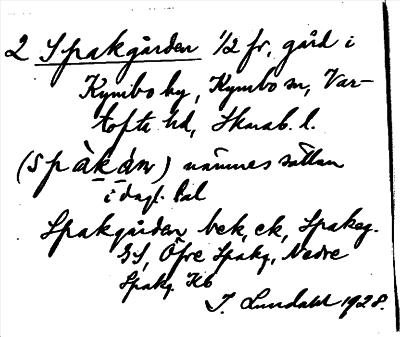 2 Spakgården 1/2 fr, gård i
Kymbo by, Kymbo sn, Var-
tofta hd, Skarab. l.
(spàkán) nämnes sällan
i dagl. tal
Spakgården bek, ek, Spakeg.
GS, Öfre Spakg, Nedre
Spakg. Kb
J. Lundahl 1928.